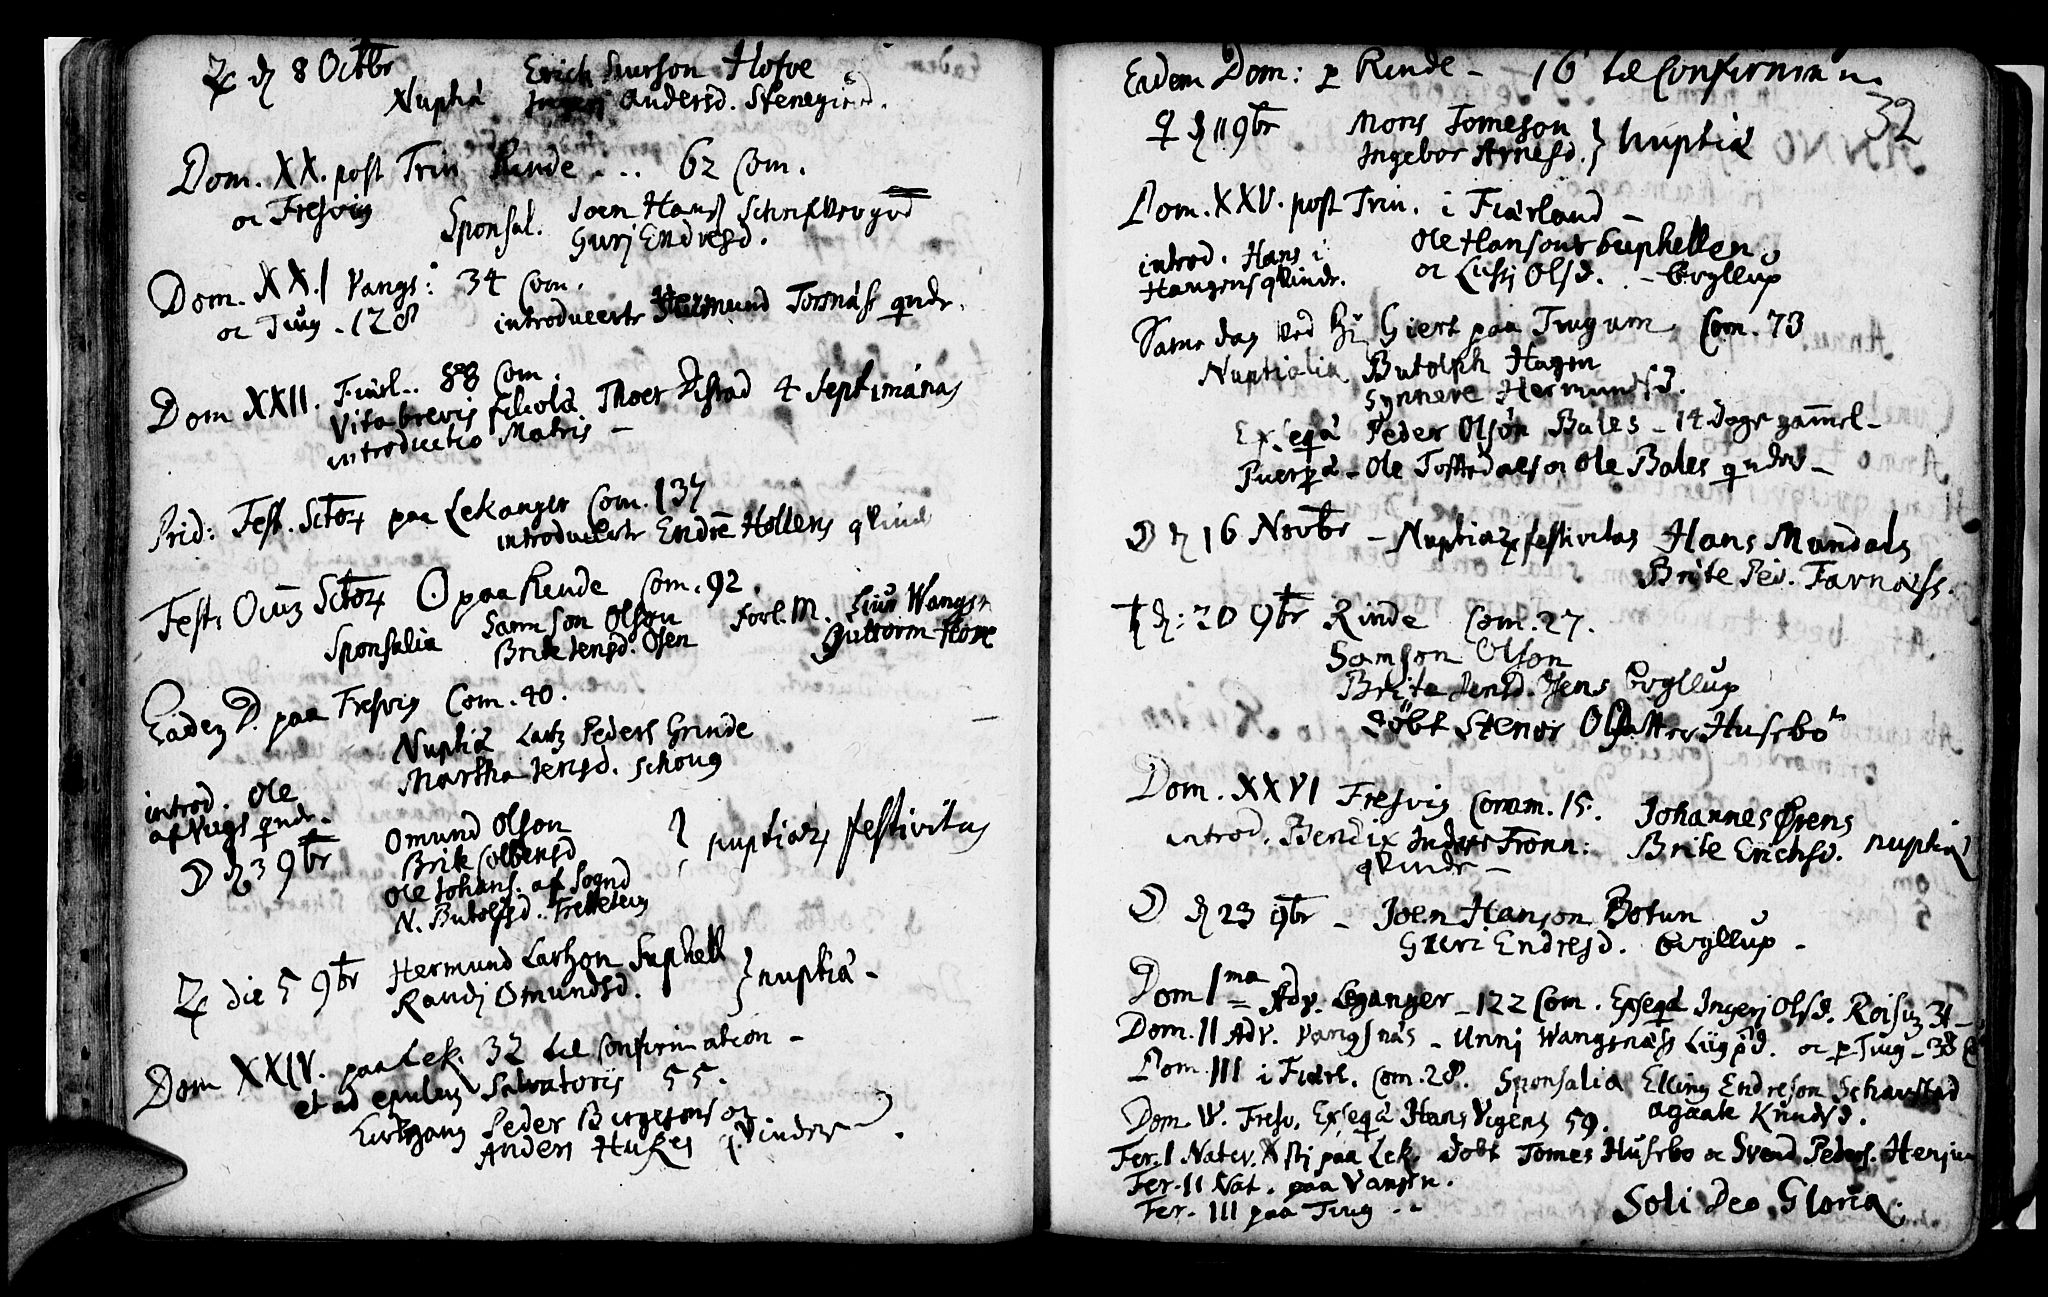 ♃ d 8 Octbr Erich Siurson Hofve
Nuptiæ Ingerj Andersd. Stenegierd.
Dom. XX. post Trin Rinde ... 62 Com.
oc Fresvig Sponsal. Joen Hanss Schrifvergrd
Gurj Endresd.
Dom. XXI Vangs: 34 Com.
oc Tiug - 128 introducerte Hermund Tornæss qvnde.
Dom XXII. Fiærl.. 88 Com.
Vita brevis filiola Thoer Distad 4 septimanas
introductio Matris -
Prid: Fest. Sctor paa Lekanger Com. 137
introducerte Endre Hollens qvind
Fest. Oium Sctor ʘ paa Rinde Com. 92.
Sponsalia Samson Olson Forl. M. Siur Wangsn
Brite Jensd. Osen Guttorm Hove
Eadem D. paa Fresvig Com. 40.
Nuptiæ Lartz Peders Grinde
Martha Jensd. Schoug
introd. Ole
af Vigs qvnde.
☽ d 3 9br Omund Olson
Brite Colbensd } nuptiar festivitas
Ole Johans. af Sogn
N. Butolfsd. Fretteim
♃ die 5 9br Hermund Larson Suphell
Randj Omundsd. } nuptiæ -
Dom XXIV. paa Lek. 32 til confirmation -
et ad epulum Salvatoris 55.
Kirkgang Peder Birgersens oc
Anders Hukes qvinder.
Eadem Dom: p Rinde - 16 til Confirman.
32
♀ d 11 9br Mons Tomeson
Ingebor Arnesd. } Nuptiæ
Dom. XXV. post Trin. i Fiærland -
introd. Hans i Ole Hanson Suphellen
Haugens qvinde. oc Lussj Olsd. - Bryllup
Same dag ved Hr Giert paa Tiugum. Com. 73
Nuptialia Butolph Hagen
Synneve Hermundsd.
Exseqiæ Peder Olson Bales - 14 Dage gamel -
Puerpæ - Ole Tofftedals oc Ole Bales qvnder -
☽ d 16 Novbr - Nuptiar festivitas Hans Mundals
Brite Ped. Farnæss.
♄ d: 20 9br Rinde Com. 27.
Samson Olson
Brite Jensd. Osens Bryllup
döbt Stenor Olsdatter Husebö
Dom. XXVI Fresvig Comm. 15. Johannes Ørens
introd. Bendix Inders Fronn: Brite Erichsd. nuptiæ
qvinde -
☽ d 23 9br - Joen Hanson Botun
Guri Endresd. Bryllup -
Dom 1ma Adv. Leganger - 122 Com. Exseqiæ Ingerj Olsd. Roisum 31 -
Dom. II Adv. Vangsnæs - Unnj Wangsnæss Liigpd. oc p Tiug - 38 C
Dom. III i Fiærl. Com. 28. Sponsalia Elling Endreson Scharestad
Agaate Knudsd.
Dom. IV. Fresv. Exseqiæ Hans Vigens 59.
Fer. I Nativ. Xsti paa Lek. dobt Tomes Husebo oc Svend Peders. Henju
Fer. II Nat. paa Vangsn.
Fer. III paa Tiug - -
Soli Deo Gloria.